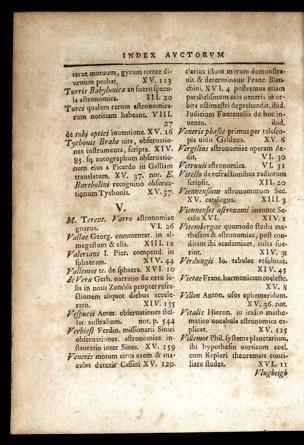 INDEX AVCTORVM
terae motuum, gyrum terrae diurnum probat. XV. 113
Turris Babylonica an fuerit specula astronomica. III. 20
Turci qualem rerum astronomicarum notitiam habeant. VIII. 27
de tubi optici inuentione. XV. 16
Tychonis Brahe vita, obseruationes
instrumenta, scripta. XIV.
85. sq. autographum obseruationum eius a Picardo in Galliam
translatum. XV. 37. not. E.
Bartholini recognitio obseruationum Tychonis. XV. 37.
V.
M. Terent. Varro astronomiae
gnarus. VI. 26
Vallae Georg. commentar. in almagestum & alia. XIII. 12
Valeriani I. Pier. compend. in
sphaeram. XIV. 44
Vallemont tr. de sphaera. XVI. 10
de Vera Gerh. narratio de ortu solis in noua Zembla propter refractionem aliquot diebus accelerato. XIV. 135
Vespucii Amer. obseruationes stellar. australium. not. p. 544
Verbiest Ferdin. missionarii Sinici
obseruationes. astronomiae instauratio inter Sinas. XV. 159
Veneris motum circa axem & maculas detexit Cassini XV. 129.
clarius illum motum demonstrauit & determinauit Franc. Blanchini. XVI. 4. postremus etiam
parallelismum axis veneris in orbita ostimestri deprehendit. ibid.
Iudicium Fontenellii de hoc inuento. ibid.
Veneris phases primus per telescopia vidit Galileus. XV. 6
Vergilius astronomiae operam dedit. VI. 30
Vitruuii astronomica. VI. 31
Vitello de refractionibus radiorum
scripsit. XII. 20
Viennensium astronomorum Sec.
XV. catalogus. XIII. 3
Viennenses astronomi ineunte Seculo XVI. XIV. 1
Vitembergae quomodo studia mathesios & astronomiae, post conditam ibi academiam, culta fuerint. XIV. 9
Virdungi Io. tabulae resolutae.
XIV. 45
Vietae Franc. harmonicum coeleste.
XV. 8
Villon Anton. usus ephemeridum.
XV. 96. not.
Vitalis Hieron. in lexico mathematico vocabula astronomica explicat. XV. 115
Villemot Phil. systema planetarium,
ibi hypothesin vorticum coelestium cum Kepleri theoremate conciliare studet. XVI. 11
Vlugbeigh